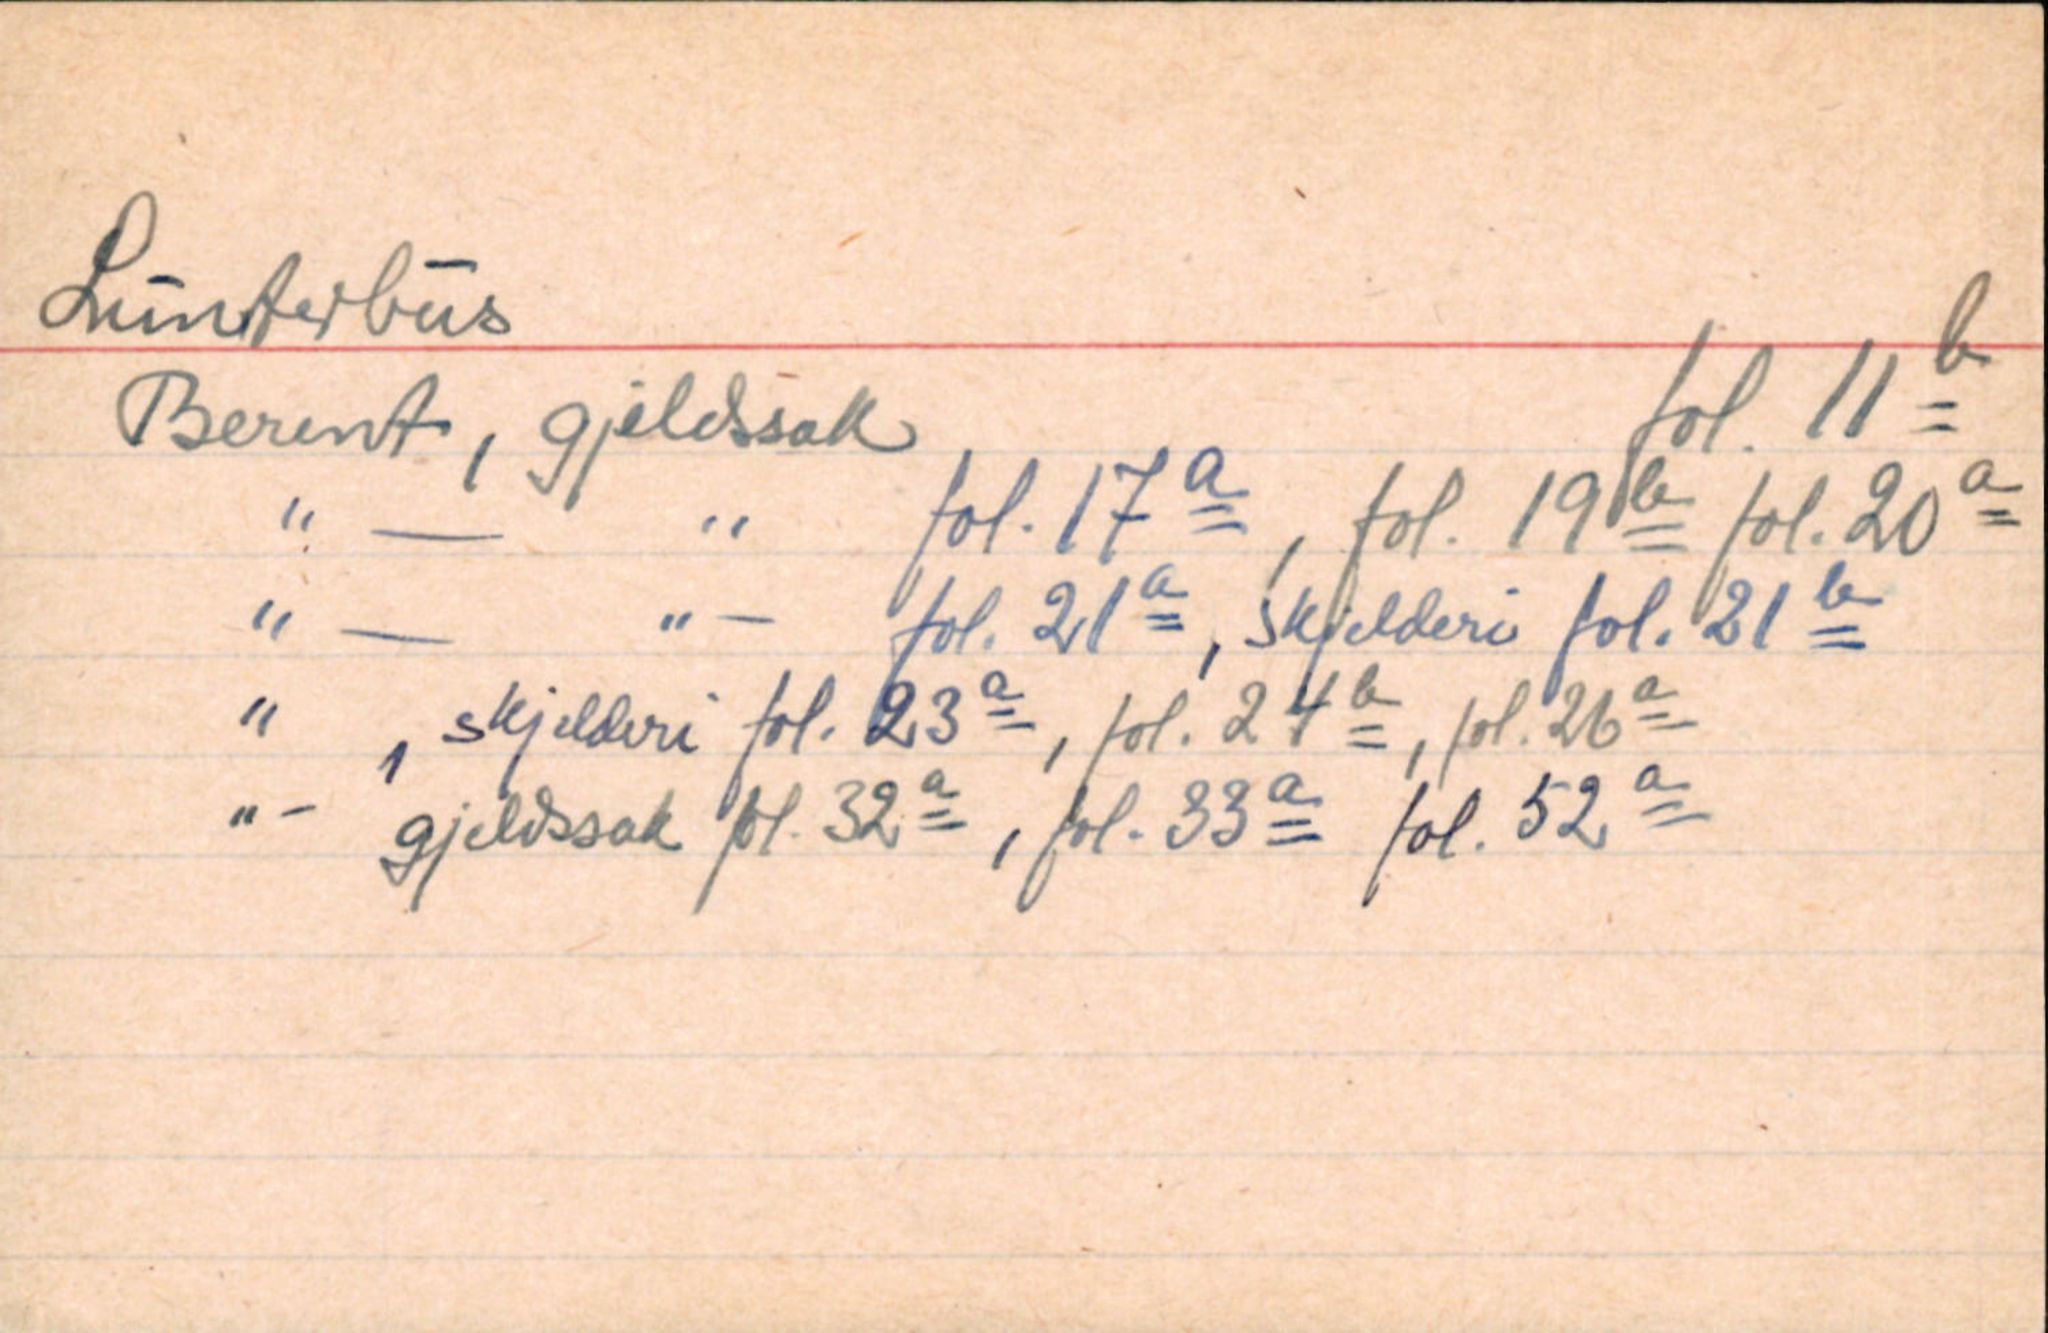 Lūnterbūs
Berent, gjeldssak fol. 11 b
" — " fol. 17 a, fol. 19 b fol. 20 a
" — " — fol. 21 a, skjelderi fol. 21 b
" , skjelderi fol. 23 a, fol. 24 b, fol. 26 a
" - gjeldssak fol. 32 a, fol. 33 a fol. 52 a